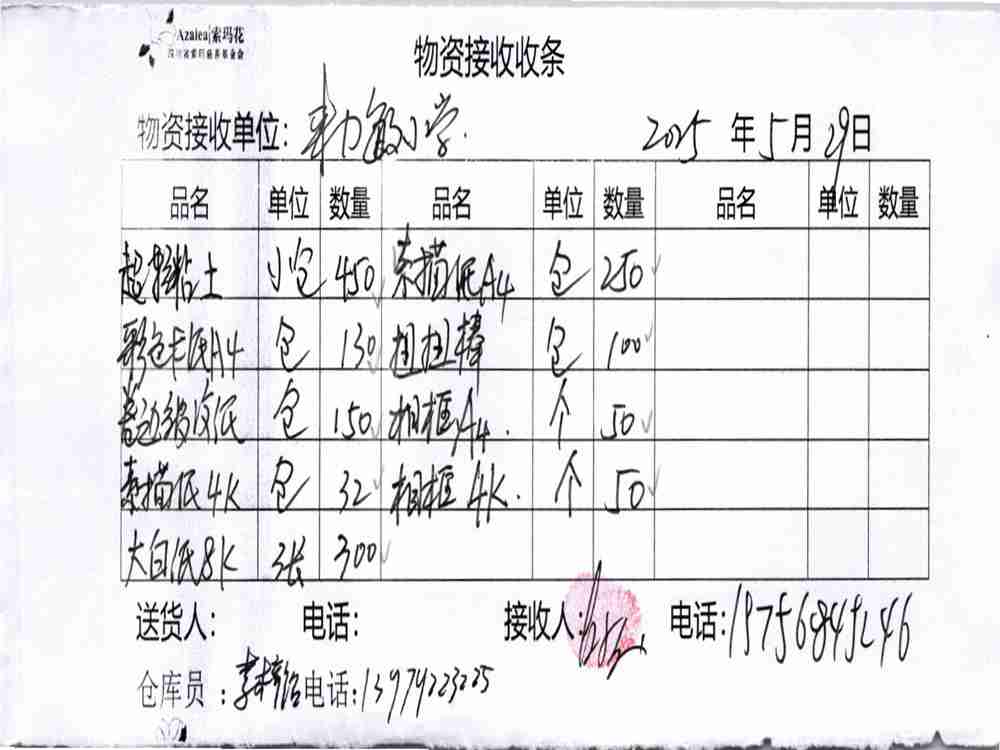 Azalea 索玛花
物资接收收条
物资接收单位: 小学.
2025 年 5 月 29 日
品名 单位 数量 品名 单位 数量 品名 单位 数量
超轻粘土 小包 450 素描纸A4 包 250
彩色卡纸A4 包 130 扭扭棒 包 100
包 150 相框A4. 个 50
素描纸4K 包 32 相框 4K. 个 50
大白纸8K 张 300
送货人: 电话: 接收人: 电话:
仓库员: 电话:13979223225